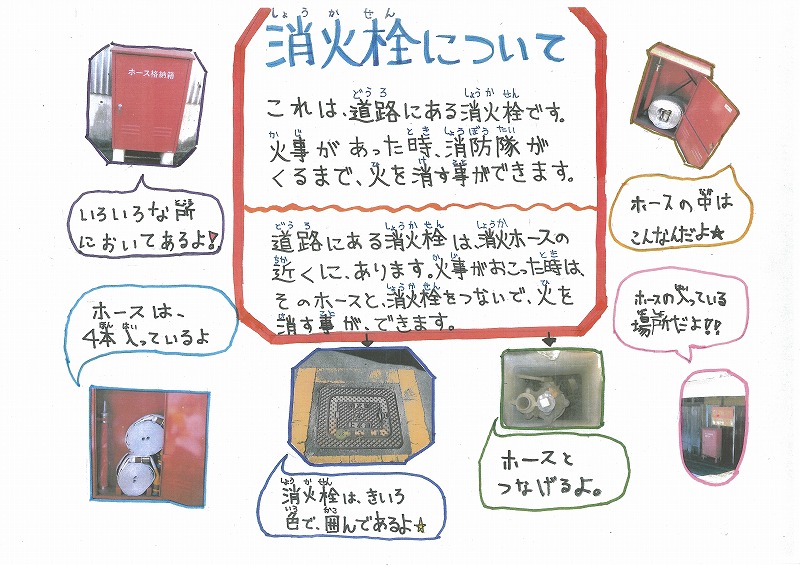 消火栓について
これは、道路にある消火栓です。
火事があった時、消防隊が
くるまで、火を消す事ができます。
道路にある消火栓は、消火ホースの
近くに、あります。火事がおこった時は、
そのホースと、消火栓をつないで、火を
消す事が、できます。
ホース格納箱
いろいろな所
においてあるよ!
ホースは、
4本入っているよ
消火栓は、きいろ
色で、囲んであるよ☆
ホースと
つなげるよ。
ホースの中は
こんなんだよ★
ホースの入っている
場所だよ!!